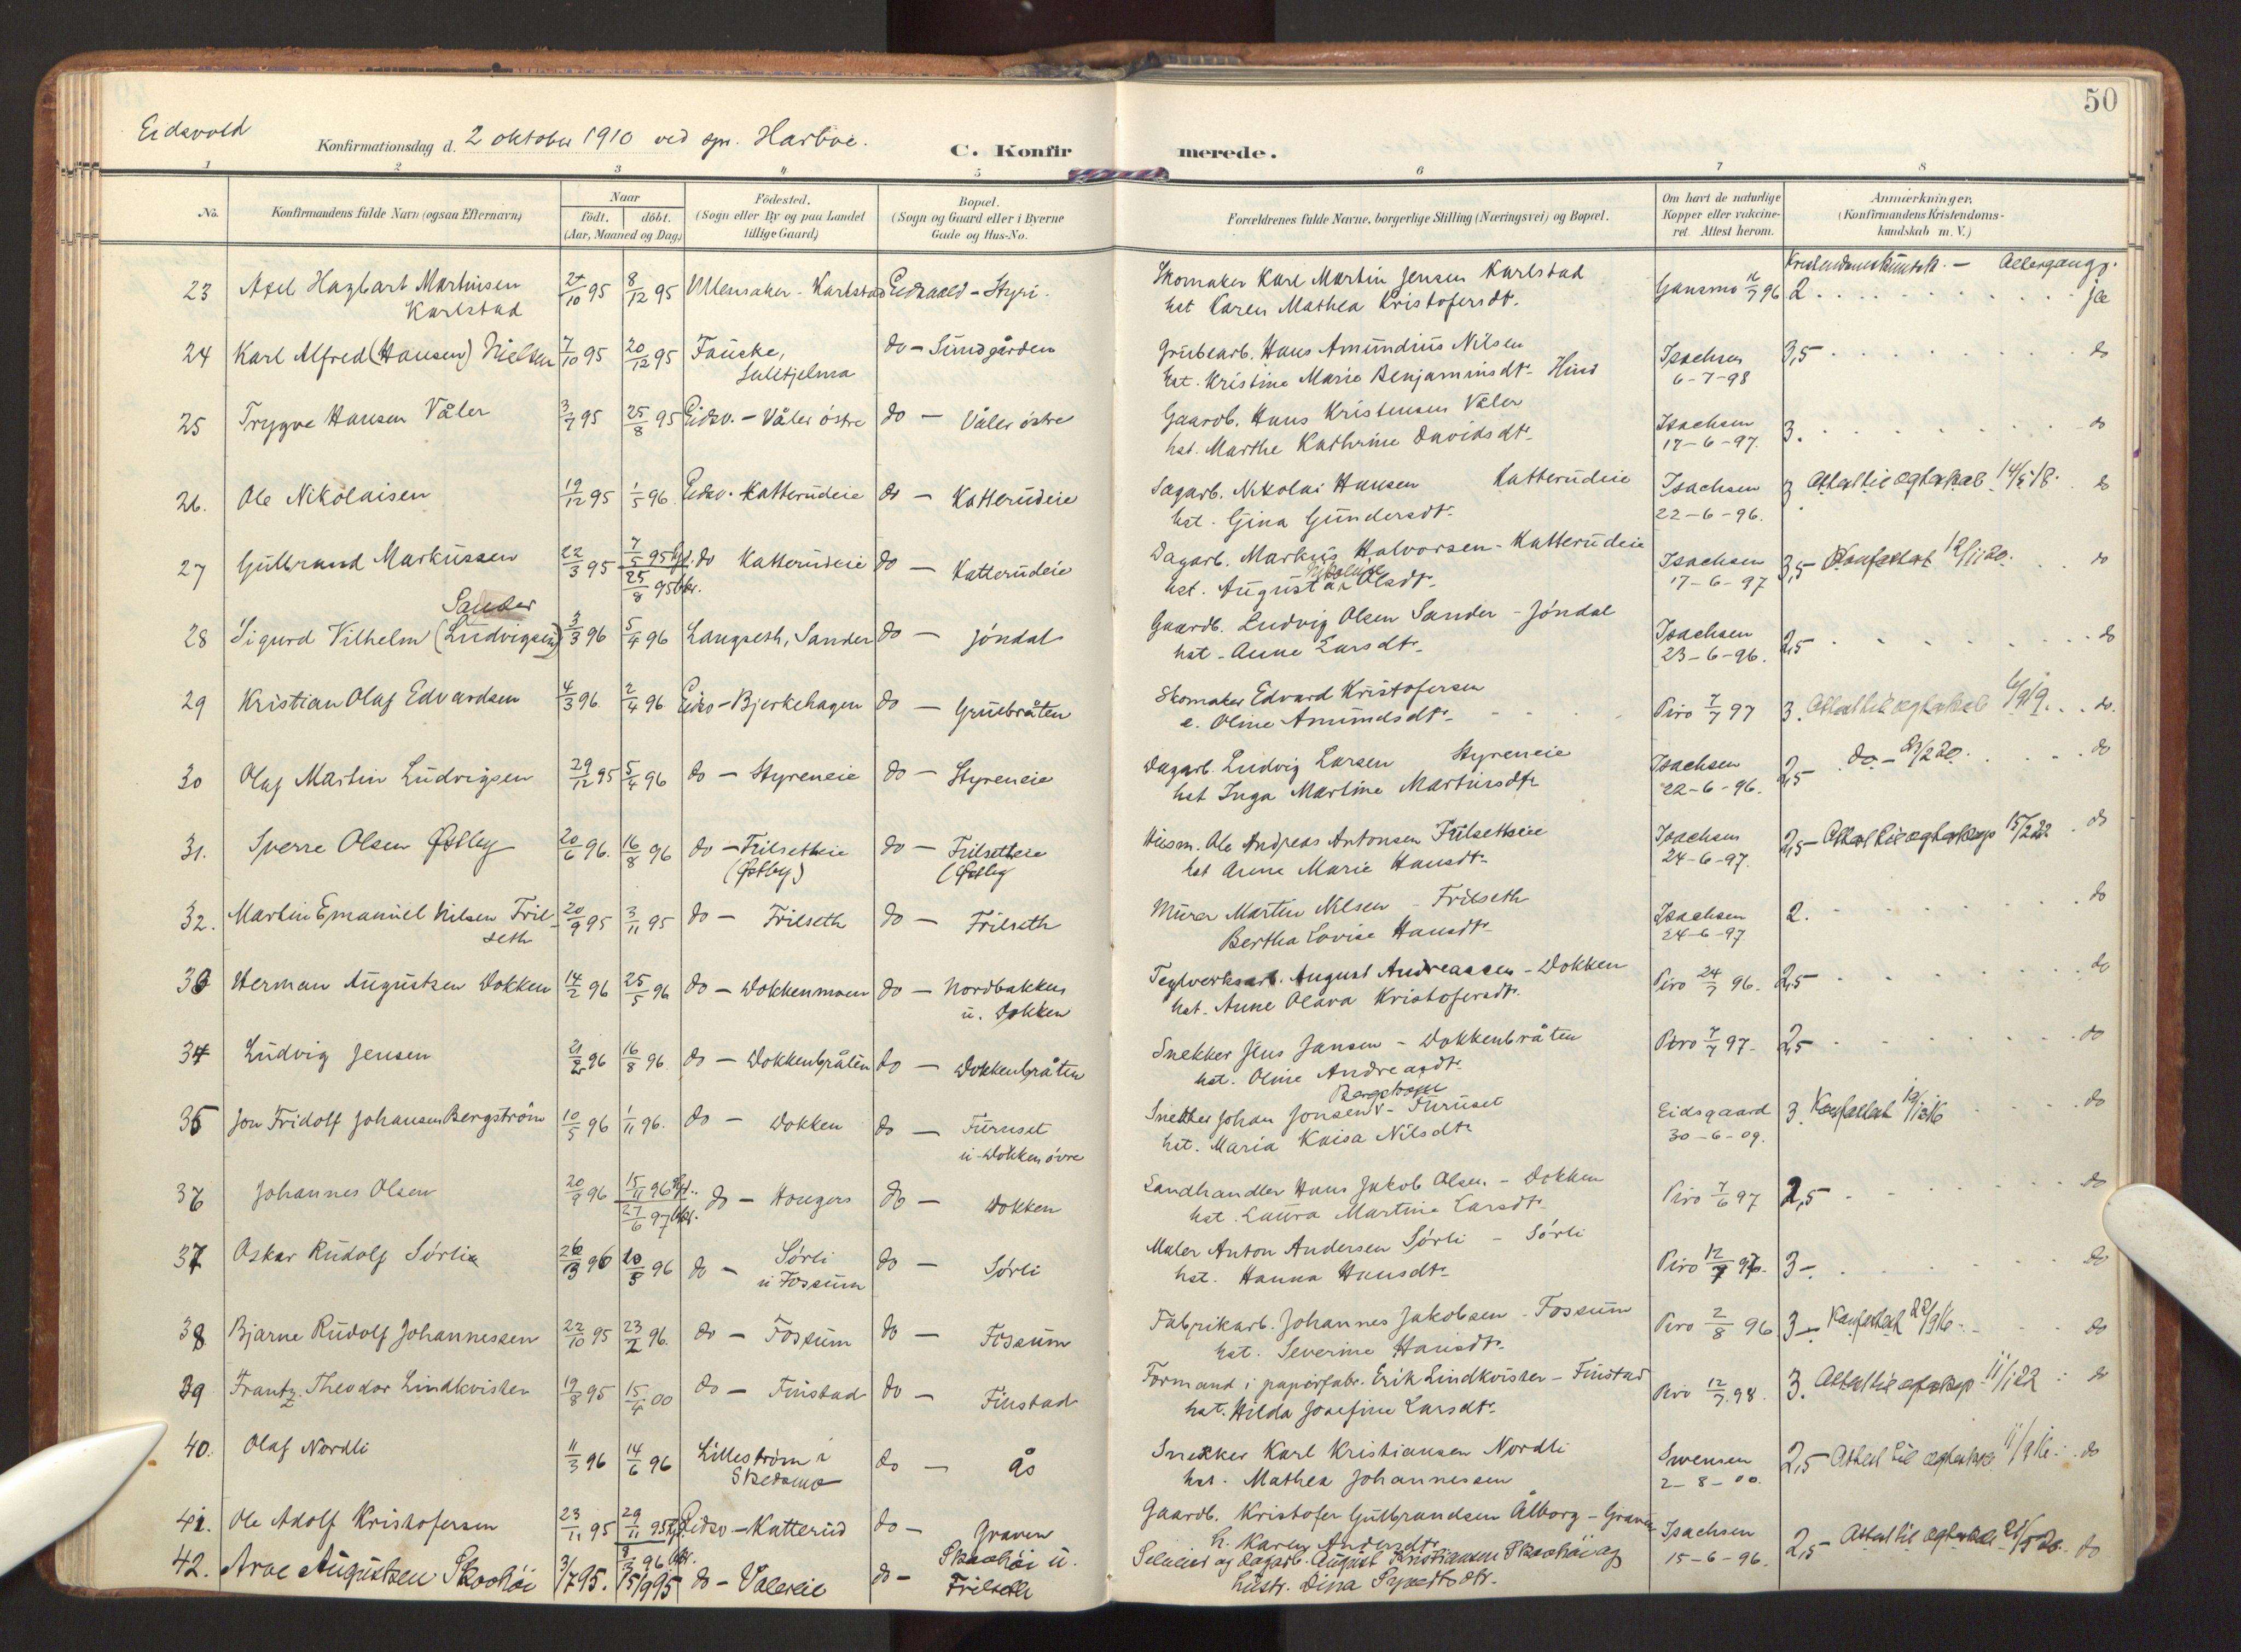 50
Eidsvold
Konfirmationsdag d. 2 oktober 1910 ved spr. Harboe.
C. Konfirmerede.
1 2 3 4 5 6 7 8
No.
Konfirmandens fulde Navn (ogsaa Efternavn)
Naar
födt. döbt.
(Aar, Maaned og Dag)
Födested.
(Sogn eller By og paa Landet
tillige Gaard)
Bopæl.
(Sogn og Gaard eller i Byerne
Gade og Hus-No.
Forældrenes fulde Navne, borgerlige Stilling (Næringsvei) og Bopæl.
Om havt de naturlige
Kopper eller vakcine-
ret. Attest herom.
Anmærkninger,
(Konfirmandens Kristendoms-
kundskab m. V.)
Kristendomskundsk. — Altergang.
23 Axel Hagbart Martinsen 24/10 95 8/12 95 Ullensaker - Karlstad Eidsvold - Styri. Skomaker Karl Martin Jensen Karlstad Gansmo 12/7 96 2 ja
Karlstad hst Karen Mathea Kristofersdt.
24 Karl Alfred (Hansen) Nielsen 7/10 95 20/12 95 Fauske, do - Sundgården Grubearb. Hans Amundius Nilsen Isachsen 3,5 do
Sulitjelma hst. Kristine Marie Benjaminsdt. 6-7-98
25 Trygve Hansen Våler 3/7 95 25/8 95 Eidsv. - Våler östre do - Våler östre Gaardb. Hans Kristensen Våler Isachsen 3. do
hst. Marthe Kathrine Davidsdt. 17-6-97.
26. Ole Nikolaisen 19/12 95 1/5 96. Eidsv. Katterudeie do - Katterudeie Sagarb. Nikolai Hansen Katterudeie Isachsen 3 Attest til ægteskab 14/5 18. do
hst. Gina Gundersdt. 22-6-96.
27 Gulbrand Markussen 22/3 95 7/5 95 hjd. do Katterudeie do - Katterudeie Dagarb. Markus Halvorsen - Katterudeie Isachsen 3,5 Konf.attest 19/11 20. do
25/8 95 kr. hst. Augusta Nikoline Olsdt. 17-6-97
Sander
28 Sigurd Vilhelm (Ludvigsen) 3/3 96 5/4 96 Langseth, Sander do - Jöndal Gaardb. Ludvig Olsen Sander - Jöndal Isachsen 2,5 do
hst. Anne Larsdt. 23-6-96.
29 Kristian Olaf Edvardsen 4/3 96. 2/4 96 Eidsv - Bjerkehagen do - Grubråten Skomaker Edvard Kristofersen Piro 7/7 97 3. Attest til ægteskab 6/9 19. do.
e. Oline Amundsdt.
30 Olaf Martin Ludvigsen 29/12 95 5/4 96 do - Styreneie do - Styreneie Dagarb. Ludvig Larsen Styreneie Isachsen 2,5 do - 21/2 20. do
hst Inga Martine Martinsdtr 22-6-96.
31. Sverre Olsen Østby 20/6 96. 16/8 96 do - Frilsetheie do - Frilsetheie Husm. Ole Andreas Antonsen Frilsetheie Isachsen 2,5 Attest til ægteskap 15/2 22 do
(Østby) (Østby hst Anne Marie Hansdt. 24-6-97.
32. Martin Emanuel Nilsen Fril 20/9 95 3/11 95 do - Frilseth do - Frilseth Murer Martin Nilsen - Frilseth Isachsen 2. do
seth Bertha Lovise Hansdt. 24-6-97
33 Herman Augustsen Dokken 14/2 96 25/5 96 do - Dokkenmoen do - Nordbakken Teglverksarb. August Andreassen - Dokken Piro 24/7 96. 2,5 do
u. Dokken hst. Anne Olava Kristofersdt.
34 Ludvig Jensen 21/2 96 16/8 96. do - Dokkenbråten do - Dokkenbråten Snekker Jens Jansen - Dokkenbråten Piro 7/7 97. 2,5 do
hst. Oline Andreasdt.
35 Jon Fridolf Johansen Bergström 10/5 96 1/11 96. do - Dokken do - Furuset Snekker Johan Jonsen Bergstrøm - Furuset Eidsgaard 3. Konf.attest do
u. Dokken övre hst. Maria Kaisa Nilsdt. 30-6-09.
36 Johannes Olsen 20/9 96 15/11 96 hjd. do - Hougers do - Dokken Landhandler Hans Jakob Olsen - Dokken Piro 7/6 97 2,5 do
27/6 97 kr. hst. Laura Martine Larsdt.
37 Oskar Rudolf Sörlie 26/3 96 10/5 96 do - Sörli do - Sörli Maler Anton Andersen Sörli - Sörli Piro 12/7 97. 3 - do
u Fossum hst. Hanna Hansdt.
38 Bjarne Rudolf Johannessen 22/10 95 23/2 96. do - Fossum do - Fossum Fabrikarb. Johannes Jakobsen - Fossum Piro 2/8 96 3 - Konf.attest 22/9 16. do
hst. Severine Hansdt.
39 Frantz Theodor Lindkvister 19/8 95 15/4 00 do - Finstad do - Finstad Formand i papirfabr. Erik Lindkvister - Finstad Piro 12/7. 98. 3. Attest til ægteskap 11/1 22 do
hst. Hilda Josefine Larsdt.
40. Olaf Nordli 11/3 96 14/6 96 Lilleström i do - Ås Snekker Karl Kristiansen Nordli Svensen 2,5 Attest til ægteskap 11/9 16. do
Skedsmo hst. Mathea Johannessen 2-8-00.
41. Ole Adolf Kristofersen 23/11 95 29/11 95 hjd. Eidsv. - Katterud do - Graven Gaardb. Kristofer Gulbrandsen Ålborg - Graven Isachsen 2,5 Attest til ægteskab 25/5 20. do
8/3 96 kr. h. Karen Andersdt. 15-6-96.
42. Arve Augustsen Skovhöi 3/7 95. 15/9 95 do - Valereie do - Skovhöi u. Frilseth Selveier og dagarb. August Kristiansen Skovhöi og
hustr. Dina Syversdtr.